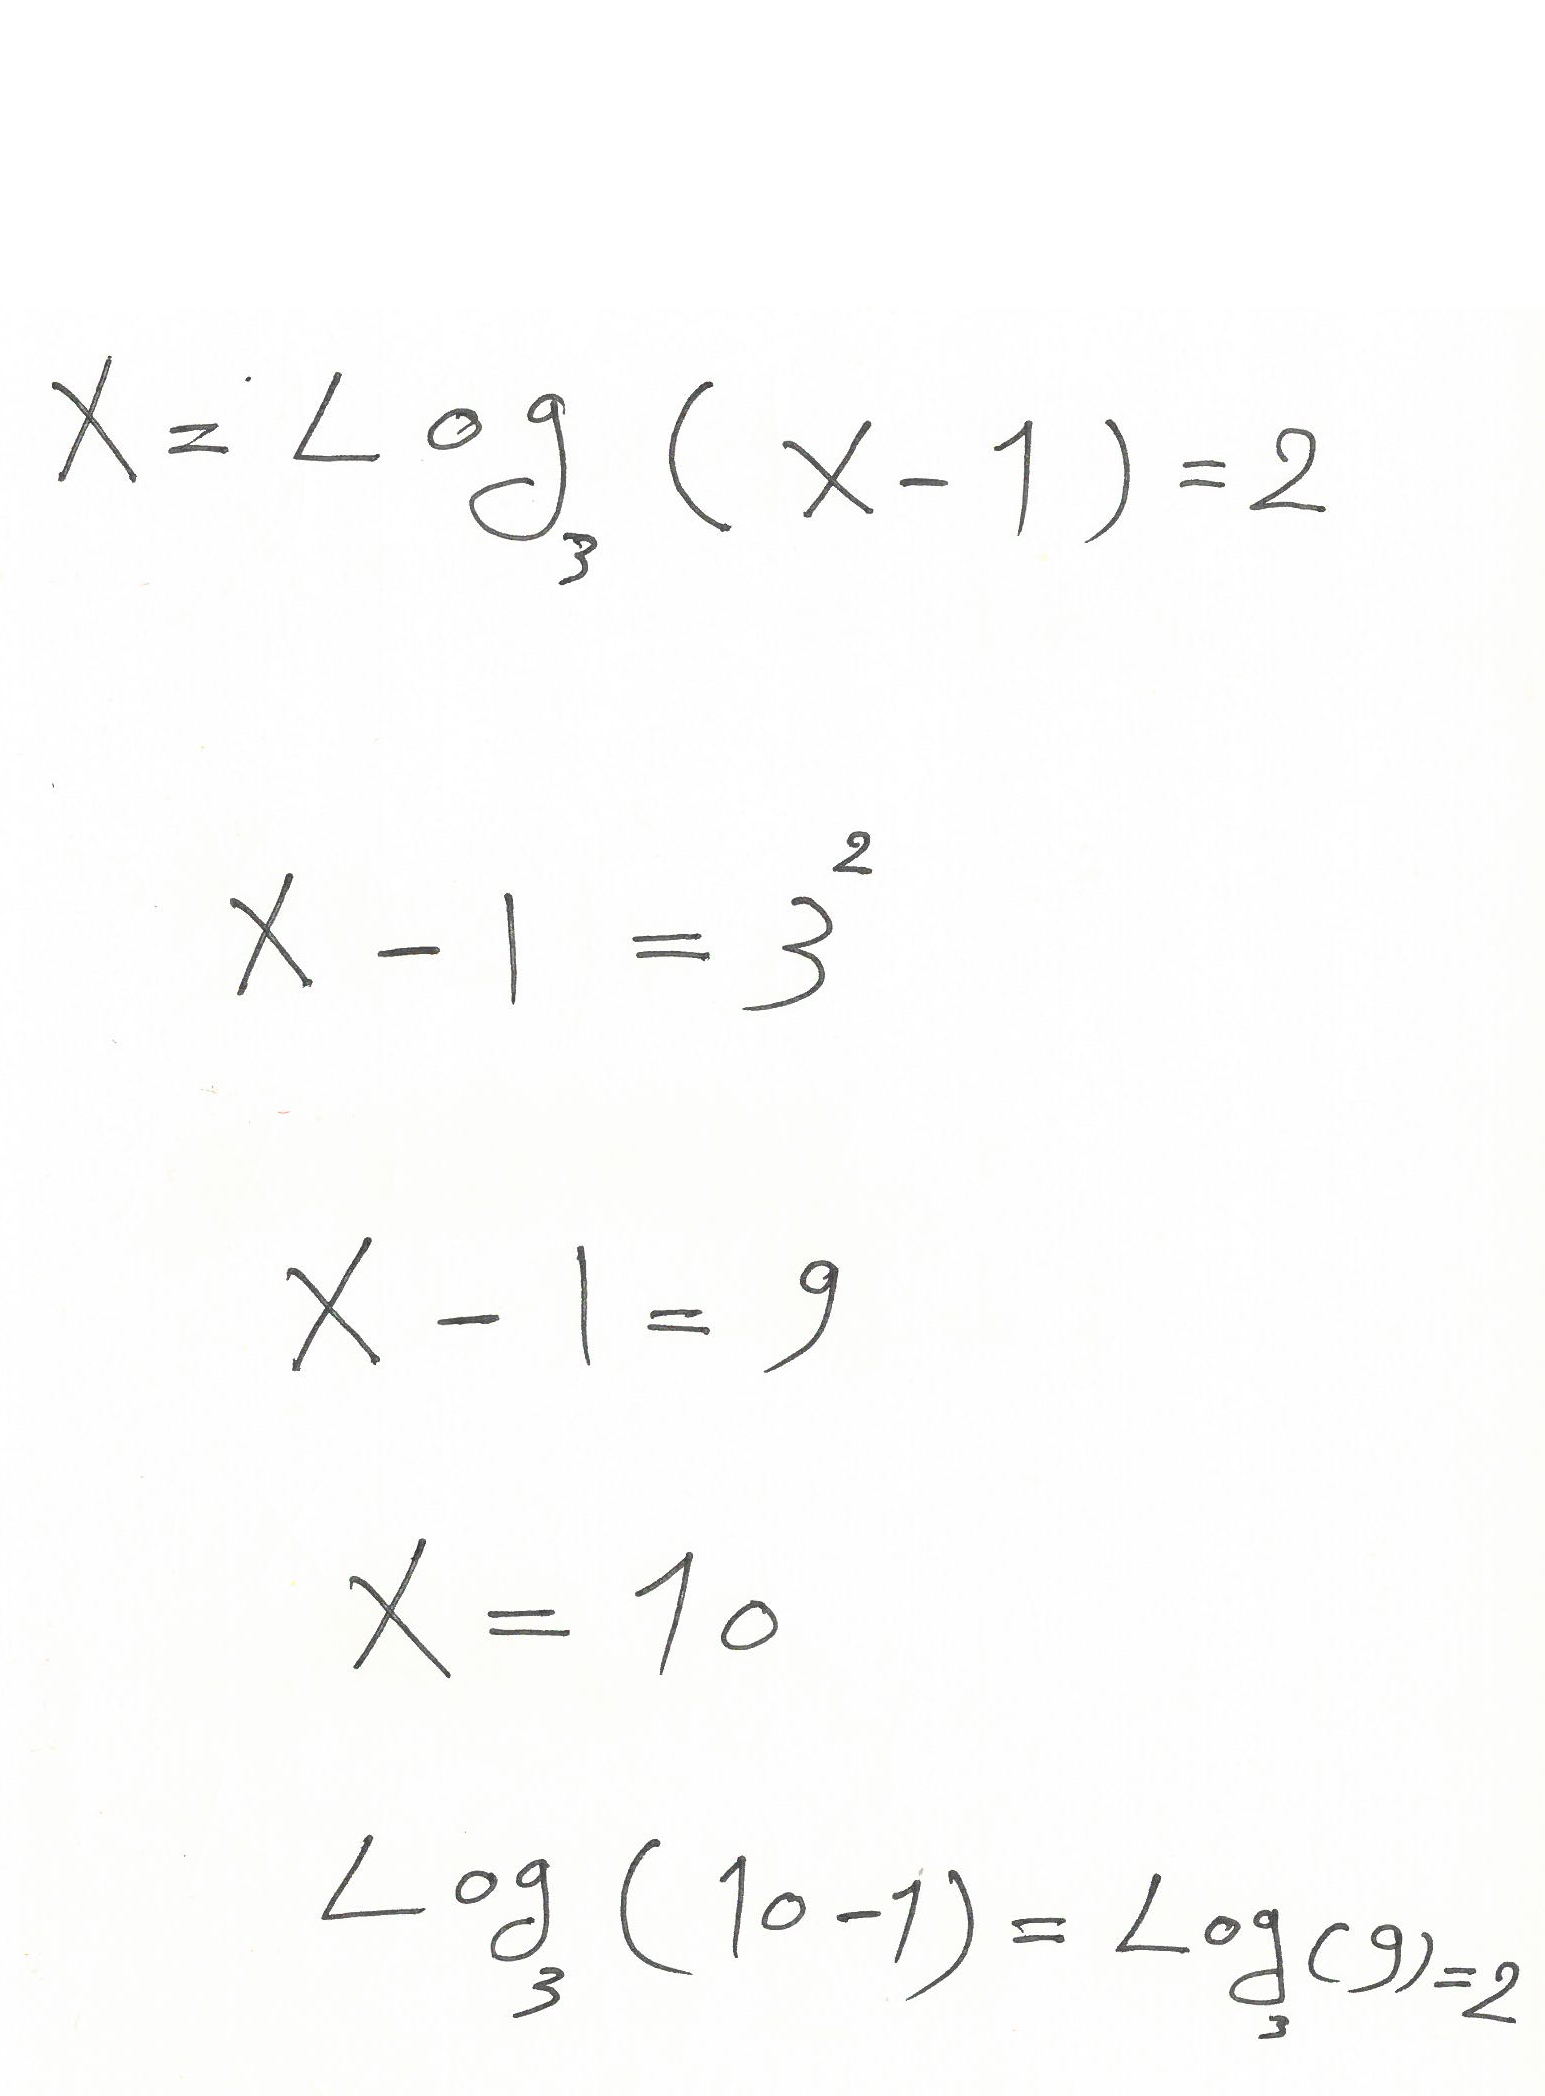 X = Log₃ (x-1) = 2
X - 1 = 3²
X - 1 = 9
X = 10
Log₃ (10-1) = Log₃(9) = 2